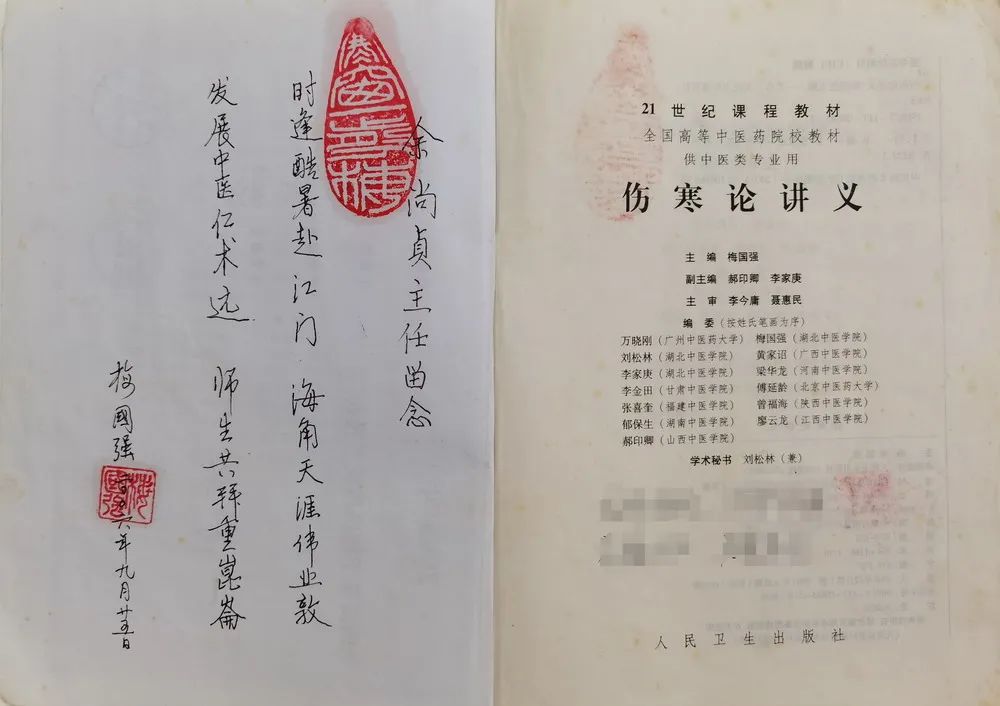 余尚贞主任留念
时逢酷暑赴江门 海角天涯伟业敦
发展中医仁术远 师生共拜重崑崙
梅國强
六年九月廿五日
21 世纪课程教材
全国高等中医药院校教材
供中医类专业用
伤寒论讲义
主 编 梅国强
副主编 郝印卿 李家庚
主 审 李今庸 聂惠民
编 委 (按姓氏笔画为序)
万晓刚 (广州中医药大学) 梅国强 (湖北中医学院)
刘松林 (湖北中医学院) 黄家诏 (广西中医学院)
李家庚 (湖北中医学院) 梁华龙 (河南中医学院)
李金田 (甘肃中医学院) 傅延龄 (北京中医药大学)
张喜奎 (福建中医学院) 曾福海 (陕西中医学院)
郁保生 (湖南中医学院) 廖云龙 (江西中医学院)
郝印卿 (山西中医学院)
学术秘书 刘松林 (兼)
人民卫生出版社